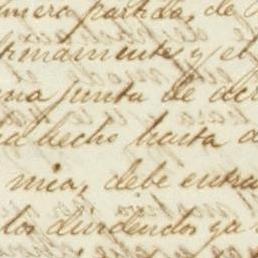 imera partida, de
timamente y el
una junta de acr
ha hecho hasta a
nia, debe entra
los dividendos ya